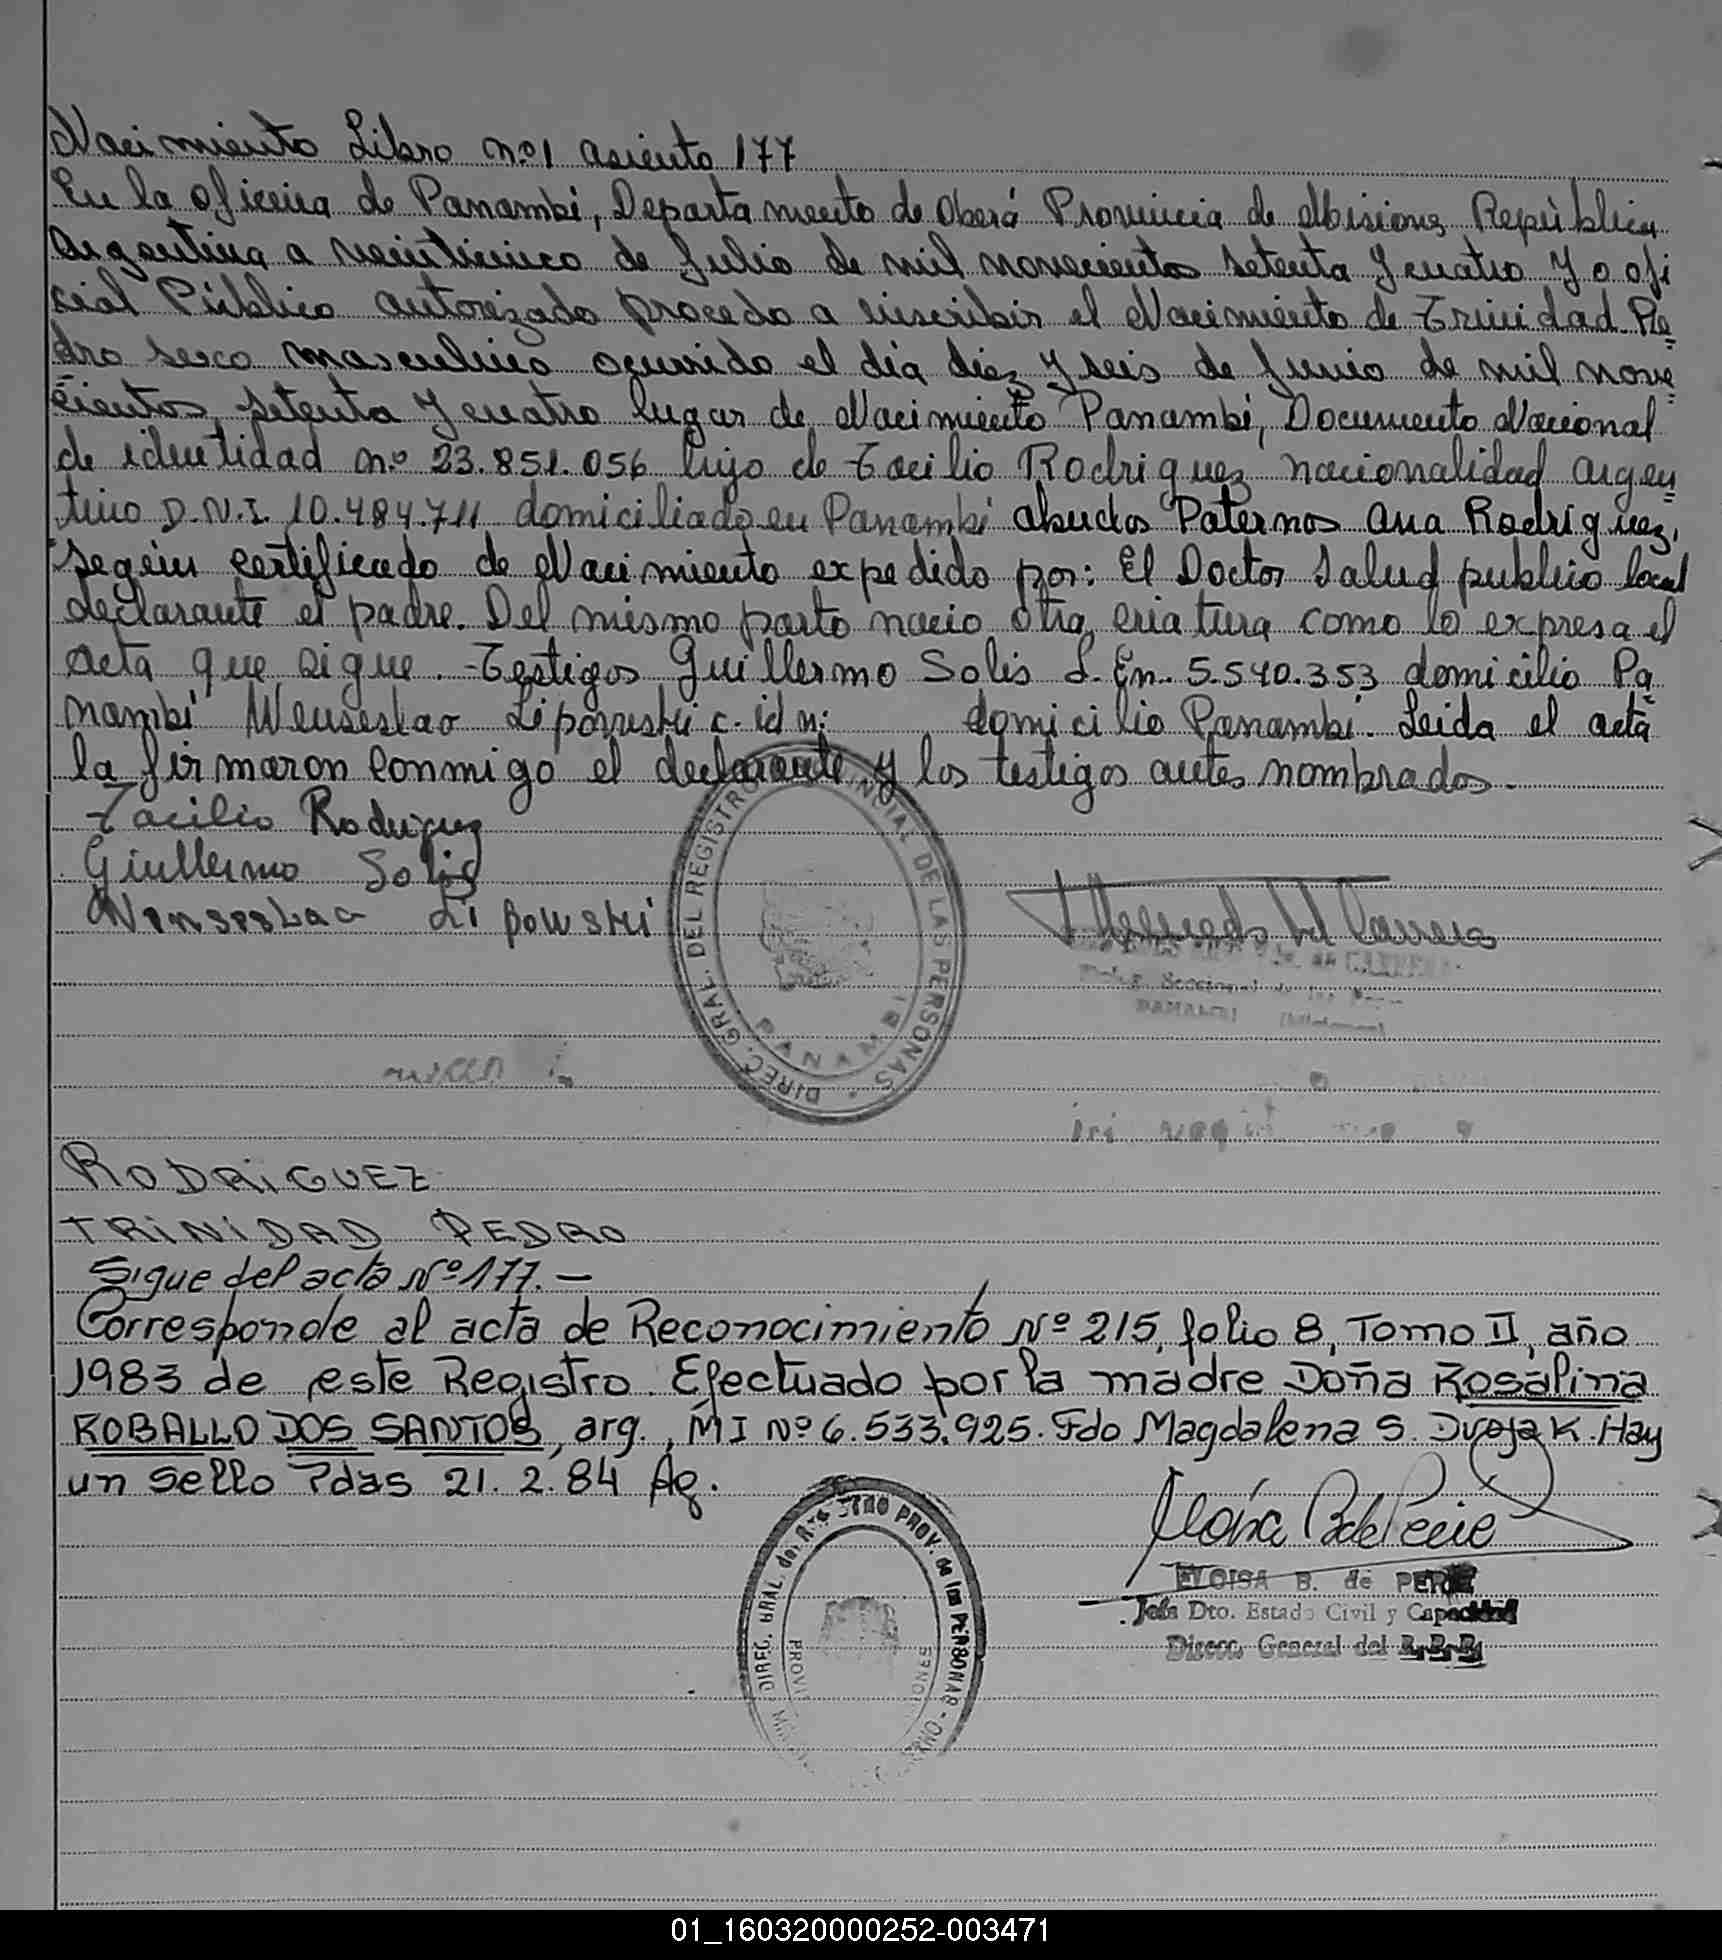 Nacimiento Libro nº1 asiento 177
En la oficina de Panambí, Departamento de Oberá Provincia de Misiones República
Argentina a veinticinco de Julio de mil novecientos setenta y cuatro Yo ofi
cial Público autorizado procedo a inscribir el Nacimiento de Trinidad Pe
dro sexo masculino ocurrido el día diez y seis de Junio de mil nove
cientos setenta y cuatro lugar de Nacimiento Panambí, Documento Nacional
de identidad nº 23.851.056 hijo de Tacilio Rodriguez nacionalidad argen
tino D.N.I. 10.484.711 domiciliado en Panambí abuelos Paternos Ana Rodriguez,
según certificado de Nacimiento expedido por: El Doctor Salud publico local
declarante el padre. Del mismo parto nacio otra criatura como lo expresa el
acta que sigue. -Testigos Guillermo Solis L. En. 5.540.353 domicilio Pa
nambí Wenseslao Liponski c. id n: domicilio Panambí. Leida el acta
la firmaron conmigo el declarante y los testigos antes nombrados.
Tacilio Rodriguez
Giullermo Solis
Wenseslao Lipowski
DIREC. GRAL. DEL REGISTRO PROVINCIAL DE LAS PERSONAS
PANAMBI
Seccional de las
PANAMBI (Misiones)
RODRIGUEZ
TRINIDAD PEDRO
Sigue del acta Nº 177.—
Corresponde al acta de Reconocimiento Nº 215, folio 8, Tomo II, año
1983 de este Registro. Efectuado por la madre Doña Rosalina
ROBALLO DOS SANTOS, arg., MI Nº 6.533.925. Fdo Magdalena S. Dvojak. Hay
un sello Pdas 21. 2. 84 Ag.
DIREC. GRAL. del REGISTRO PROV. de las PERSONAS
ELOISA B. de PERIE
Jefa Dto. Estado Civil y Capacidad
Direcc. General del R.P.P.
01_160320000252-003471